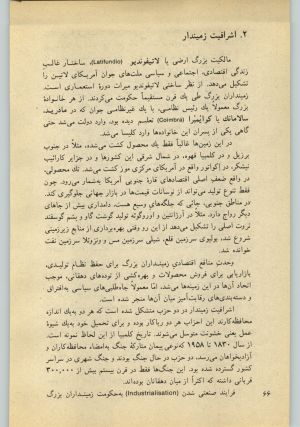 ۲. اشرافیت زمیندار
مالکیت بزرگ ارضی یا لاتیفوندیو (Latifundio)، ساختار غالب
زندگی اقتصادی، اجتماعی و سیاسی ملت‌های جوان آمریکای لاتین را
تشکیل می‌دهد. از نظر ساختی لاتیفوندیو میراث دورهٔ استعماری است.
زمینداران بزرگ طی یك قرن مستقیماً حکومت می‌کردند. از هر خانوادهٔ
بزرگ معمولاً یك رئیس نظامی، یا یك غیرنظامی که در مادرید،
سالامانکا یا کوایمبرا (Coimbra) تعلیم دیده بود، وارد دولت می‌شد حتی
گاهی یکی از پسران این خانواده‌ها وارد کلیسا می‌شد.
در این زمین‌ها غالباً فقط یك محصول کشت می‌شده، مثلاً در جنوب
برزیل و در کلمبیا قهوه، در شمال شرقی این کشورها و در جزایر کارائیب
نیشکر، در اکوادور واقع در آمریکای مرکزی موز کشت می‌شد. تك محصولی،
در واقع ضعف اصلی اقتصادهای قارهٔ جنوبی آمریکا به‌شمار می‌رود. چون
فقط تنوع تولید می‌تواند از نوسانات قیمت‌ها در بازار جهانی جلوگیری کند.
در مناطق جنوبی، جائی که جلگه‌های وسیع هست، دامداری بیش از جاهای
دیگر رواج دارد. مثلاً در آرژانتین و اوروگوئه تولید گوشت گاو و پشم گوسفند
ثروت اصلی را تشکیل می‌دهد از این رو وقتی بهره‌برداری از منابع زیرزمینی
شروع شد، بولیوی سرزمین قلع، شیلی سرزمین مس و ونزوئلا سرزمین نفت
خوانده شد.
وحدت منافع اقتصادی زمینداران بزرگ برای حفظ نظام تولیدی،
بازاریابی برای فروش محصولات و بهره‌کشی از توده‌های دهقانی، موجب
اتحاد آن‌ها در این زمینه‌ها می‌شد. امّا معمولاً جاه‌طلبی‌های سیاسی به‌افتراق
و دسته‌بندی‌های رقابت‌آمیز میان آن‌ها منجر شده است.
اشرافیت زمیندار در دو حزب متشکل شده است که هر دو به‌یك اندازه
محافظه‌کارند. این احزاب هر دو ریاکار بوده و برای تحمیل خود به‌یك شیوهٔ
عمل یعنی خشونت متوسل می‌شوند. تاریخ کلمبیا از این لحاظ نمونه است.
از سال ۱۸۳۰ تا ۱۹۵۸ که‌نوعی پیمان متارکهٔ جنگ به‌امضاء محافظه‌کاران و
آزادیخواهان می‌رسد، دو حزب در حال جنگ بودند و جنگ شهری در سراسر
کشور گسترده شده بود. این جنگ‌ها فقط در قرن بیستم بیش از ۳۰۰,۰۰۰
قربانی داشته که اکثراً از میان دهقانان بوده‌اند.
فرایند صنعتی شدن (Industrialisation) به‌حکومت زمینداران بزرگ
۶۶